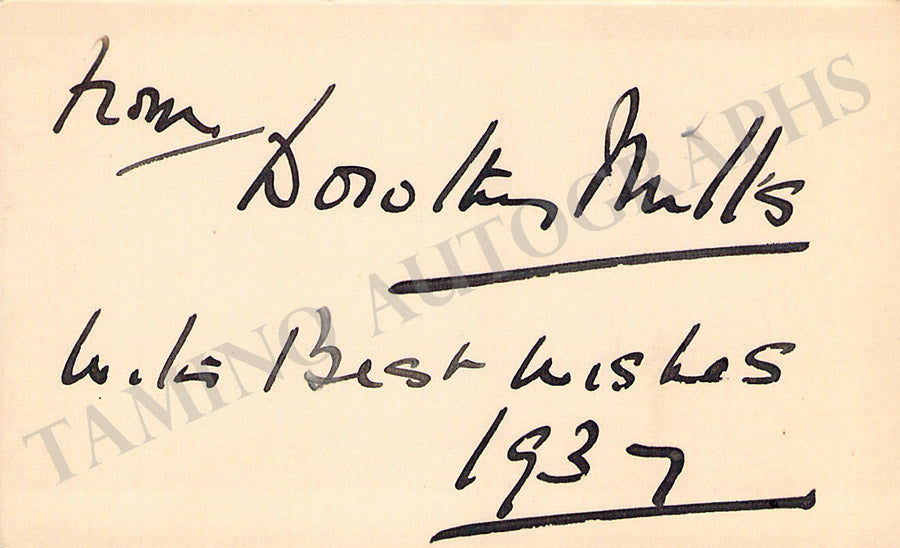 from
Dorothy Mills
With Best Wishes
1937
TAMINO AUTOGRAPHS